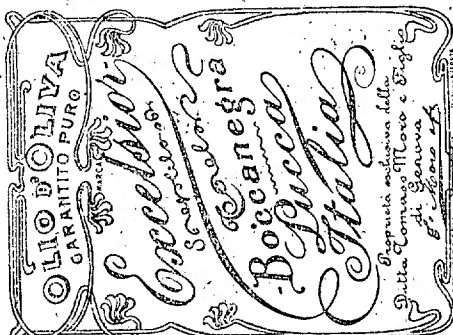 OLIO D'OLIVA
GARANTITO PURO
MARCA
Excelsior
Boccanegra
Lucca
Italia
Proprietà esclusiva della
Ditta Tommaso Moro e Figlio
di Genova